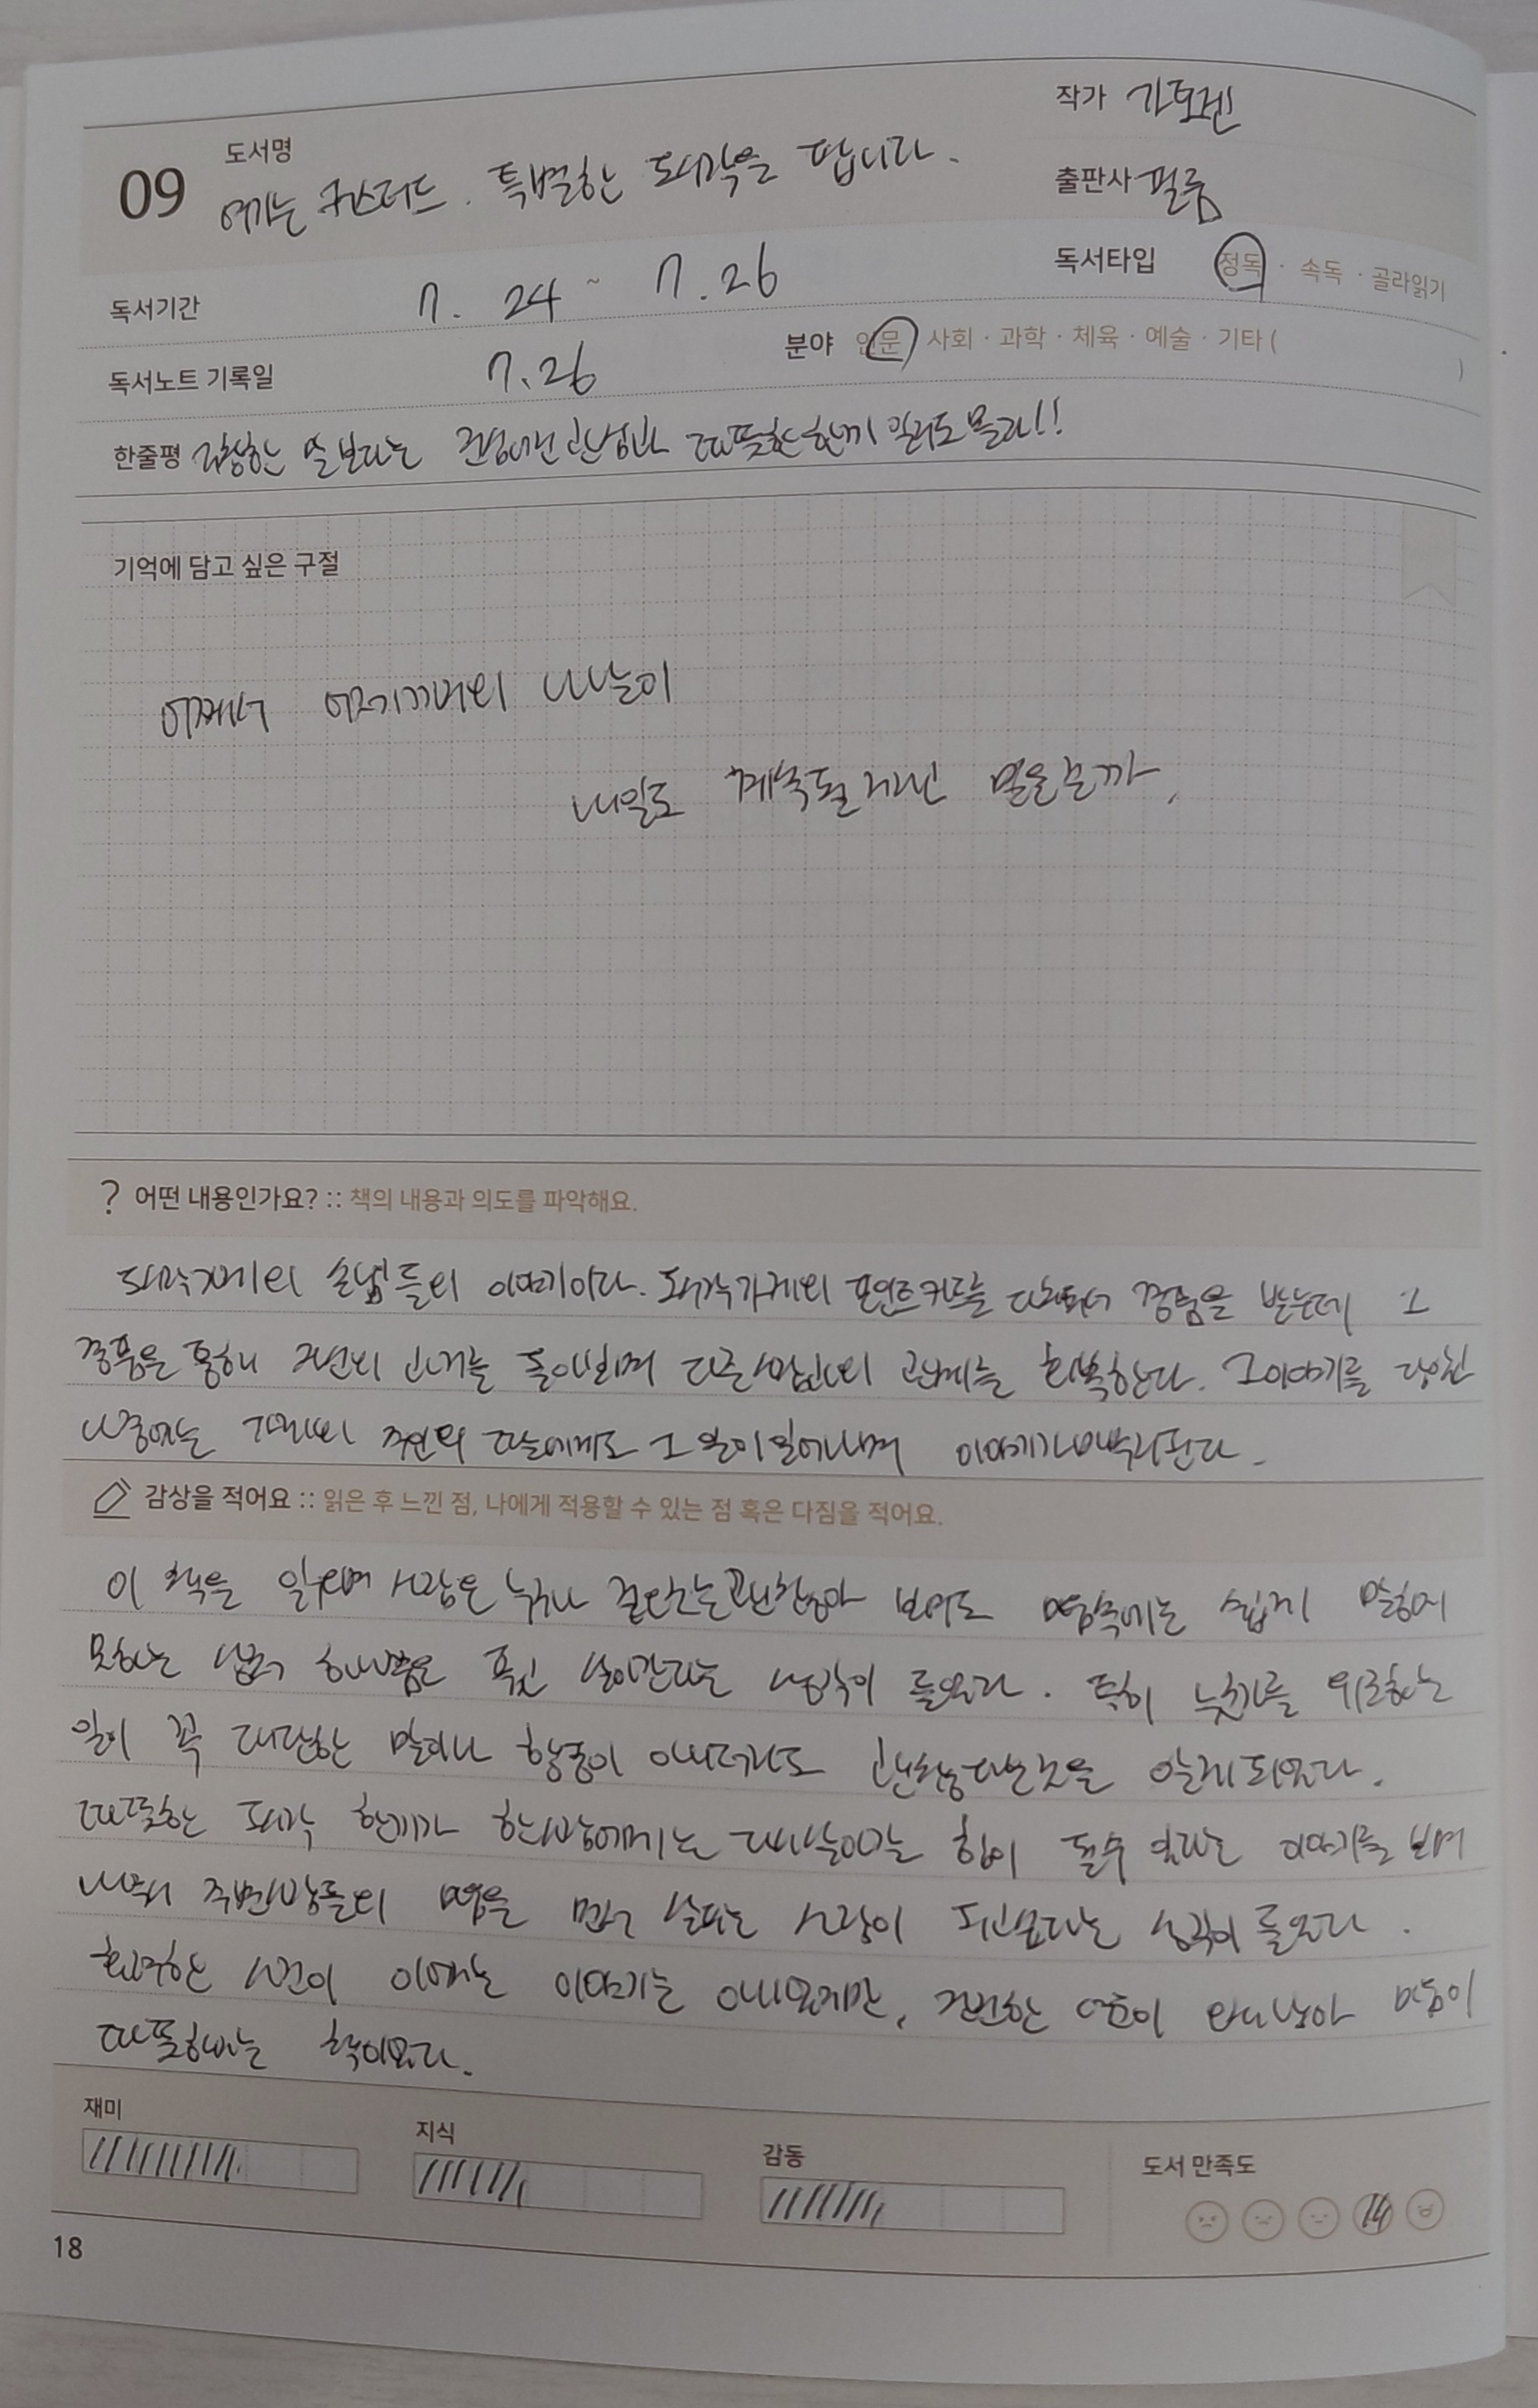 작가 가토 겐
도서명
09 여기는 커스터드, 특별한 도시락을 팝니다.
출판사 필름
독서타입 정독 · 속독 · 골라읽기
독서기간 7. 24 ~ 7. 26
분야 인문 · 사회 · 과학 · 체육 · 예술 · 기타 ( )
독서노트 기록일 7. 26
한줄평 거창한 말보다는 진심어린 관심과 따뜻한 한끼 일지도 몰라!!
기억에 담고 싶은 구절
어째서 어제까지의 나날이
내일도 계속될 거라 믿은걸까,
? 어떤 내용인가요? :: 책의 내용과 의도를 파악해요.
도시락가게의 손님들의 이야기이다. 도시락가게의 포인트카드를 다 경품을 받는데 그
경품을 통해 과거를 돌아보며 다른사람과의 관계를 회복한다. 그이야기를
가게의 주인의 딸에게도 그 일이 일어나며 이야기가 마무리된다.
감상을 적어요 :: 읽은 후 느낀 점, 나에게 적용할 수 있는 점 혹은 다짐을 적어요.
이 책을 읽으며 사람은 누구나 겉으로는 괜찮아 보여도 마음속에는 쉽게 말하지
못하는 상처 하나쯤은 품고 살아간다는 생각이 들었다. 특히 누군가를 위로하는
일이 꼭 대단한 말이나 행동이 아니더라도 괜찮다는것을 알게되었다.
따뜻한 도시락 한끼가 한사람에게는 다시 살아갈 힘이 될수 있다는 이야기를 보며
나도 주변사람들의 마음을 먼저 살피는 사람이 되고싶다는 생각이 들었다.
화려한 사건이 이어지는 이야기는 아니었지만, 잔잔한 여운이 오래 남아 마음이
따뜻해지는 책이었다.
재미
지식
감동
도서 만족도
18